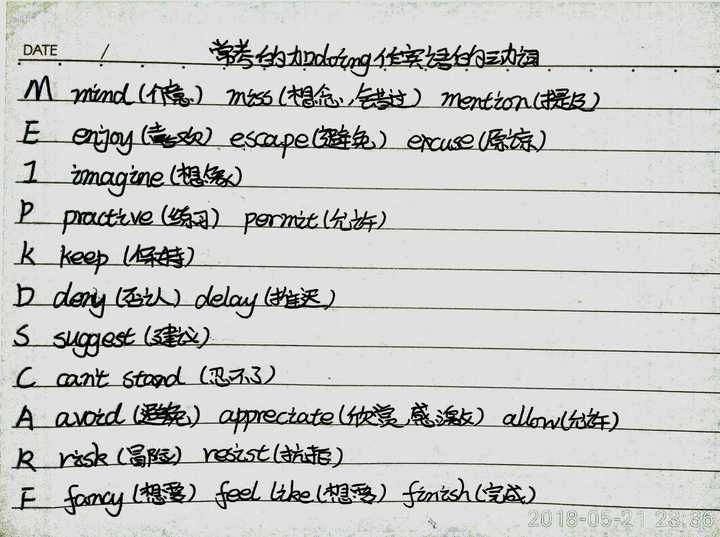 DATE / 常考的加doing作宾语的动词
M mind (介意) miss (想念、错过) mention (提及)
E enjoy (喜欢) escape (避免) excuse (原谅)
I imagine (想象)
P practive (练习) permit (允许)
K keep (保持)
D deny (否认) delay (推迟)
S suggest (建议)
C can't stand (忍不了)
A avoid (避免) appreciate (欣赏、感激) allow (允许)
R risk (冒险) resist (抗拒)
F fancy (想要) feel like (想要) finish (完成)
2018-05-21 23:36